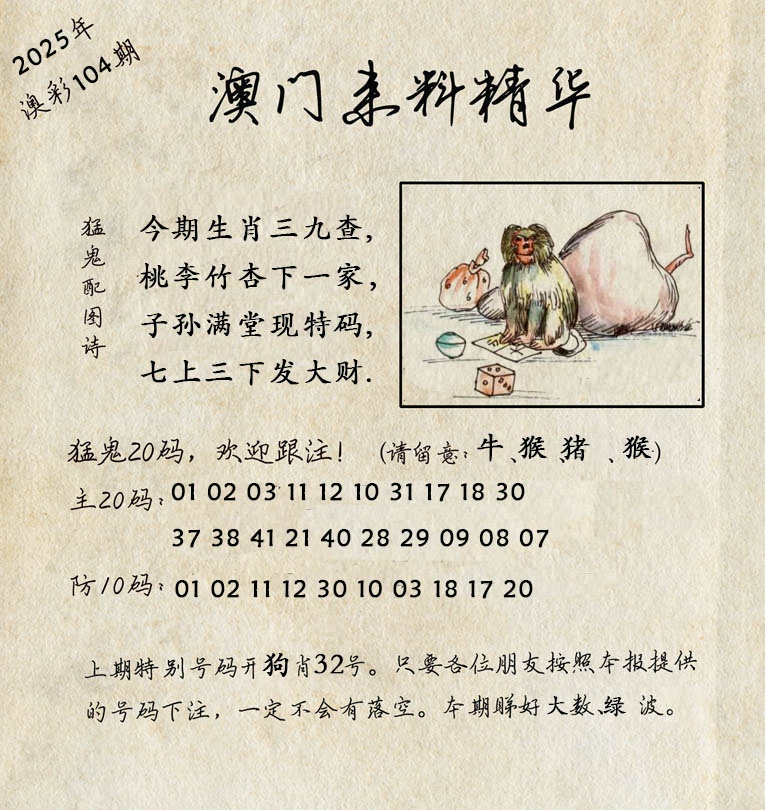 2025年
澳彩104期
澳门来料精华
猛鬼配图诗
今期生肖三九查，
桃李竹杏下一家，
子孙满堂现特码，
七上三下发大财.
猛鬼20码，欢迎跟注！（请留意：牛、猴 猪 、猴）
主20码：01 02 03 11 12 10 31 17 18 30
37 38 41 21 40 28 29 09 08 07
防10码：01 02 11 12 30 10 03 18 17 20
上期特别号码开狗肖32号。只要各位朋友按照本报提供
的号码下注，一定不会有落空。本期睇好大数、绿 波。